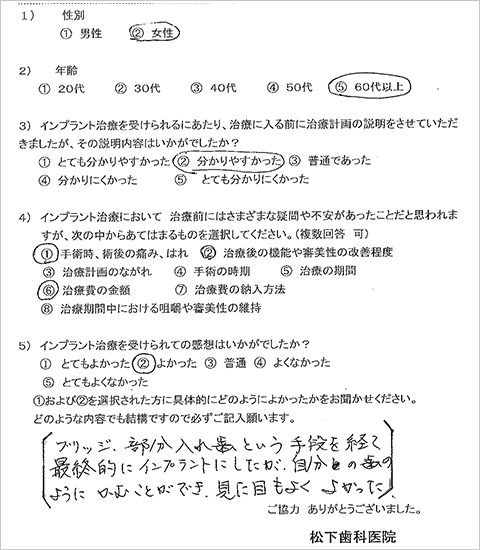 1） 性別
① 男性 ② 女性
2） 年齢
① 20代 ② 30代 ③ 40代 ④ 50代 ⑤ 60代以上
3）インプラント治療を受けられるにあたり、治療に入る前に治療計画の説明をさせていただ
きましたが、その説明内容はいかがでしたか？
① とても分かりやすかった ② 分かりやすかった ③ 普通であった
④ 分かりにくかった ⑤ とても分かりにくかった
4）インプラント治療において 治療前にはさまざまな疑問や不安があったことだと思われま
すが、次の中からあてはまるものを選択してください。（複数回答 可）
① 手術時、術後の痛み、はれ ② 治療後の機能や審美性の改善程度
③ 治療計画のながれ ④ 手術の時期 ⑤ 治療の期間
⑥ 治療費の金額 ⑦ 治療費の納入方法
⑧ 治療期間中における咀嚼や審美性の維持
5）インプラント治療を受けられての感想はいかがでしたか？
① とてもよかった ② よかった ③ 普通 ④ よくなかった
⑤ とてもよくなかった
①および②を選択された方に具体的にどのようによかったかをお聞かせください。
どのような内容でも結構ですので必ずご記入願います。
ブリッジ、部分入れ歯という手段を経て
最終的にインプラントにしたが、自分の歯の
ように かむことができ、見た目もよく よかった
ご協力 ありがとうございました。
松下歯科医院